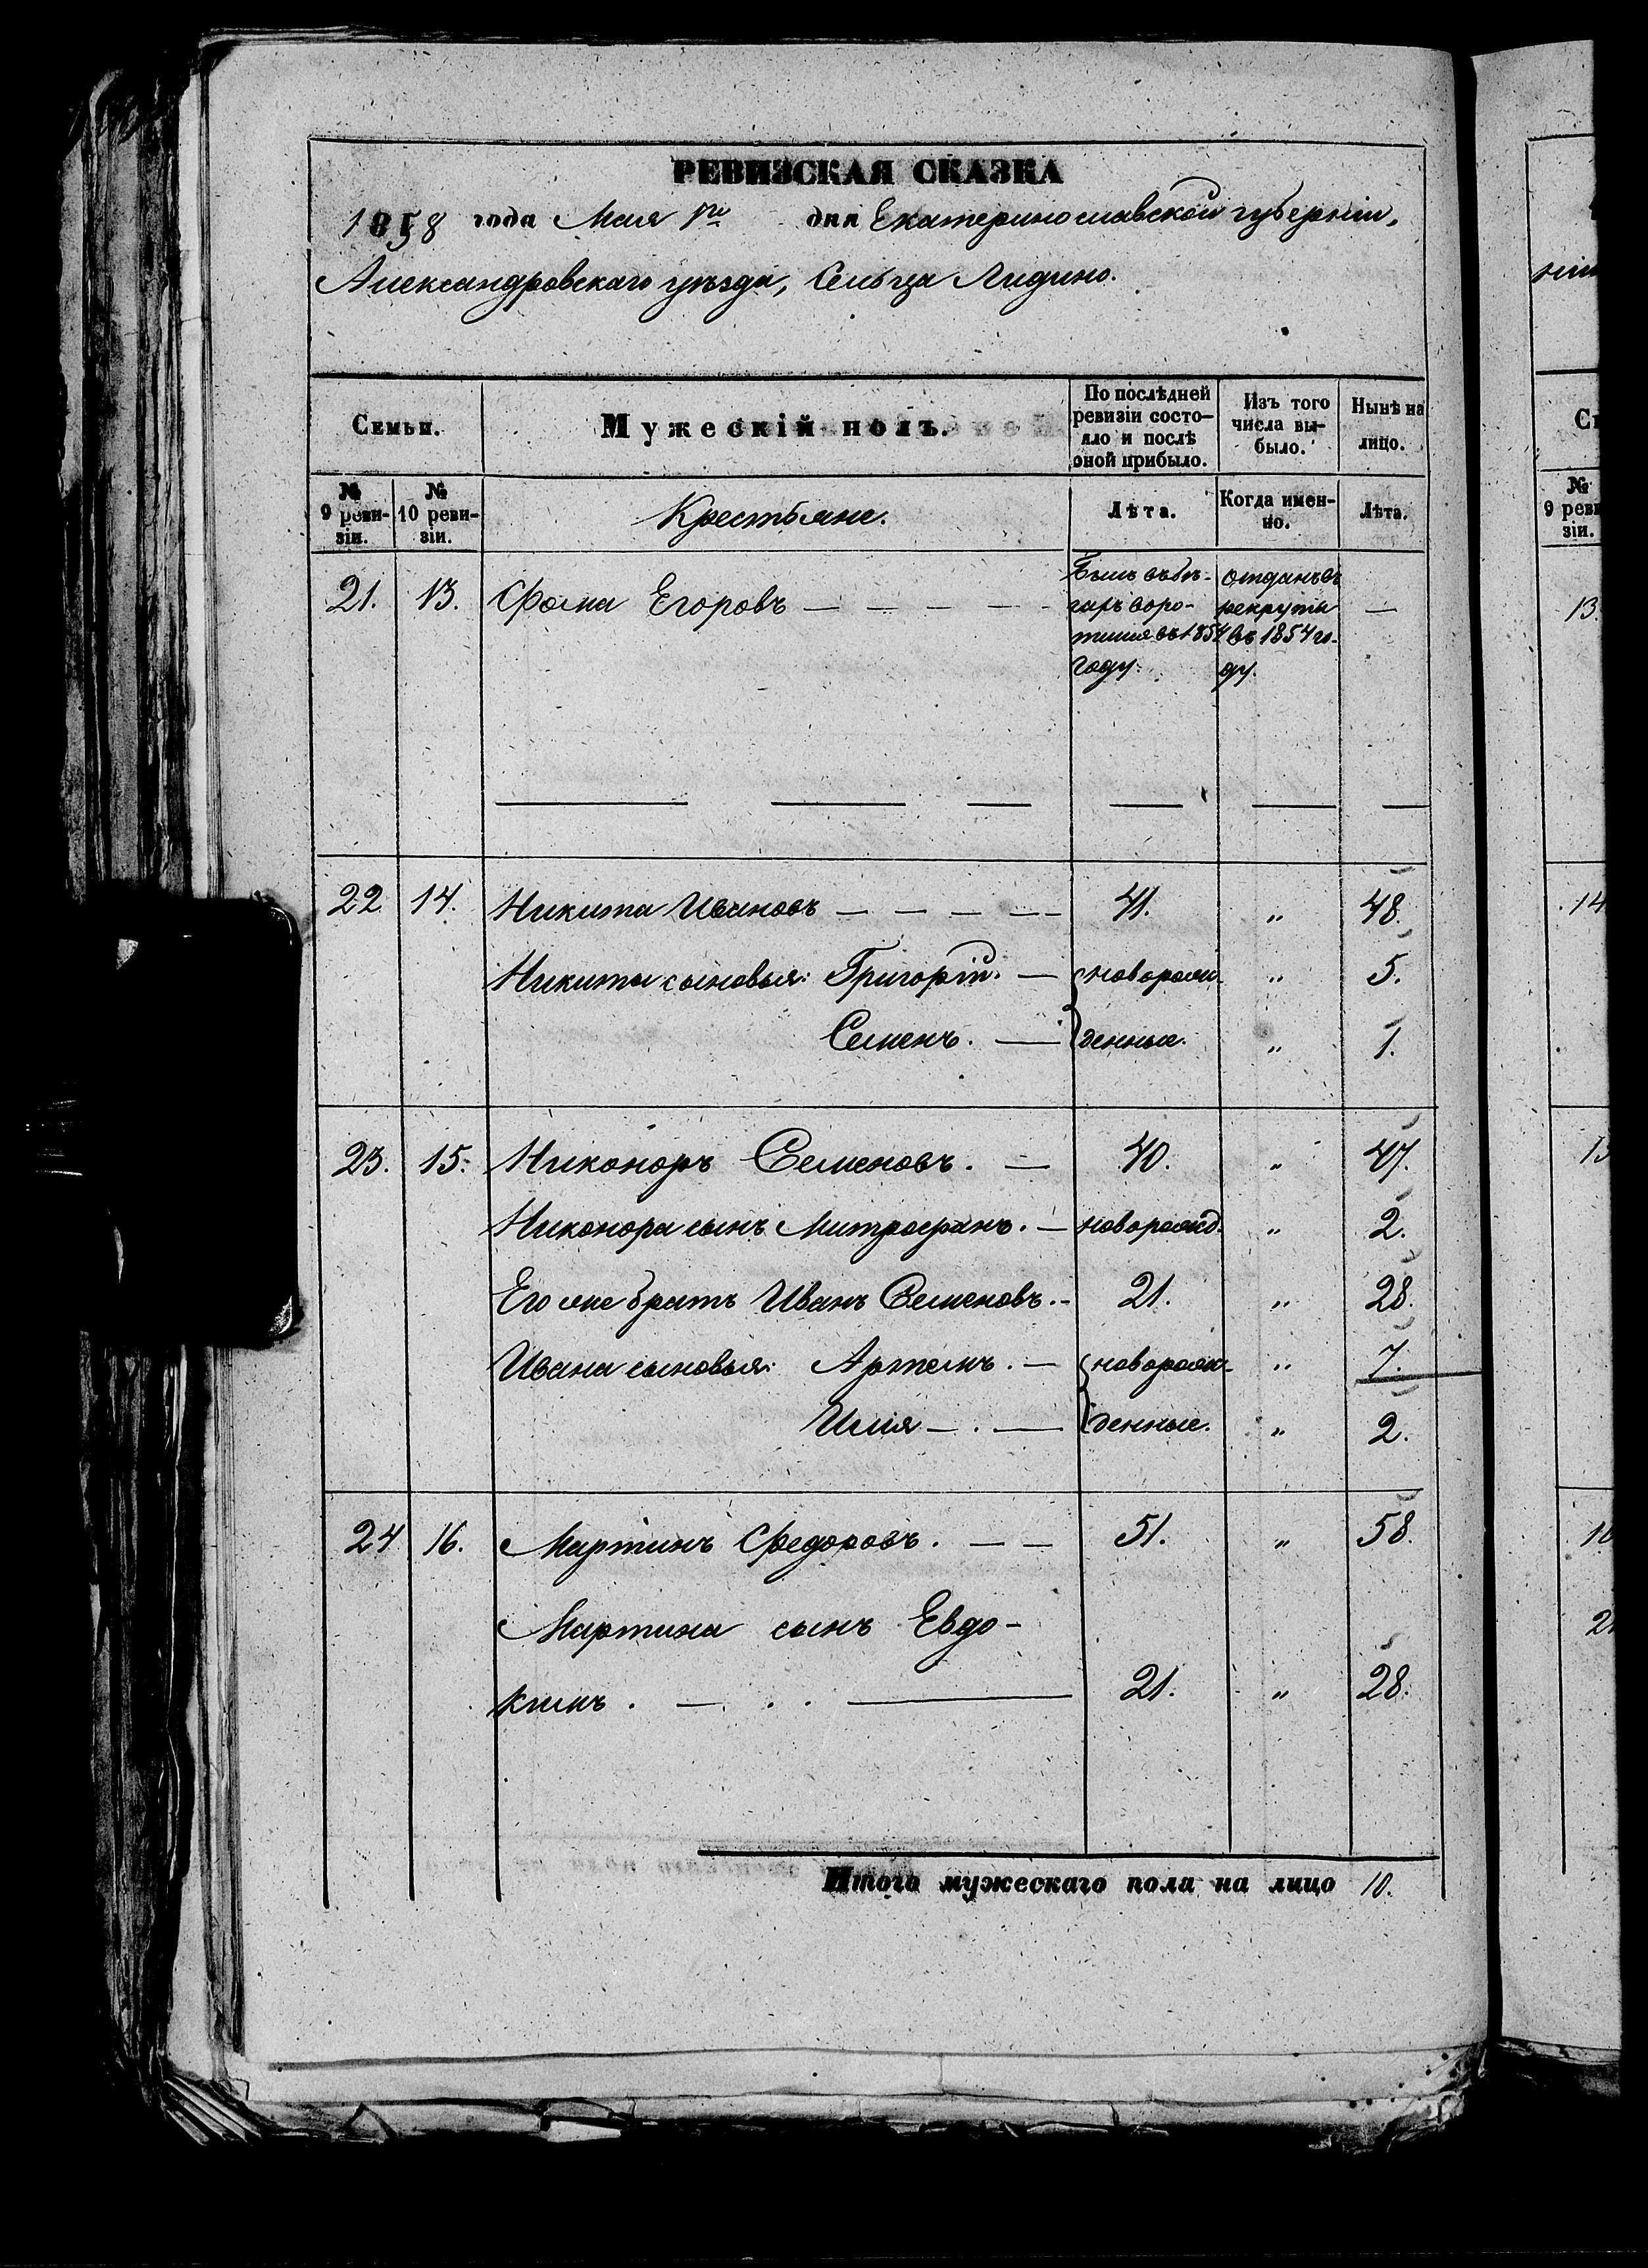 РЕВИЗСКАЯ СКАЗКА
1858 года Мая 1го дня Екатеринославской губерніи,
Александровскаго уѣзда, Сельца Лидино.
Семьи. Мужескій полъ. По послѣдней ревизіи состояло и послѣ оной прибыло. Изъ того числа выбыло. Нынѣ на лицо.
№ 9 ревизіи. № 10 ревизіи. Крестьяне. Лѣта. Когда именно. Лѣта.
21. 13. Фома Егоровъ — — — — — Былъ въ бѣ- отданъ въ —
гахъ воро- рекруты
тился въ 1854 въ 1854 го-
году. ду.
22 14. Никита Ивановъ — — — — 41. „ 48.
Никиты сыновья: Григорій. — новорож- „ 5.
Семенъ. — денные. „ 1.
23. 15. Никоноръ Семеновъ. — 40. „ 47.
Никонора сынъ Митрофанъ. — новорожд. „ 2.
Его же братъ Иванъ Семеновъ. - 21. „ 28.
Ивана сыновья: Артемъ. — новорож- „ 7.
Илія — . — денные. „ 2.
24 16. Мартинъ Федоровъ. — — 51. „ 58.
Мартина сынъ Евдо-
кимъ. — . . — 21. „ 28.
Итого мужескаго пола на лицо 10.
13.
14
15
16
№ 9 реви
зіи.